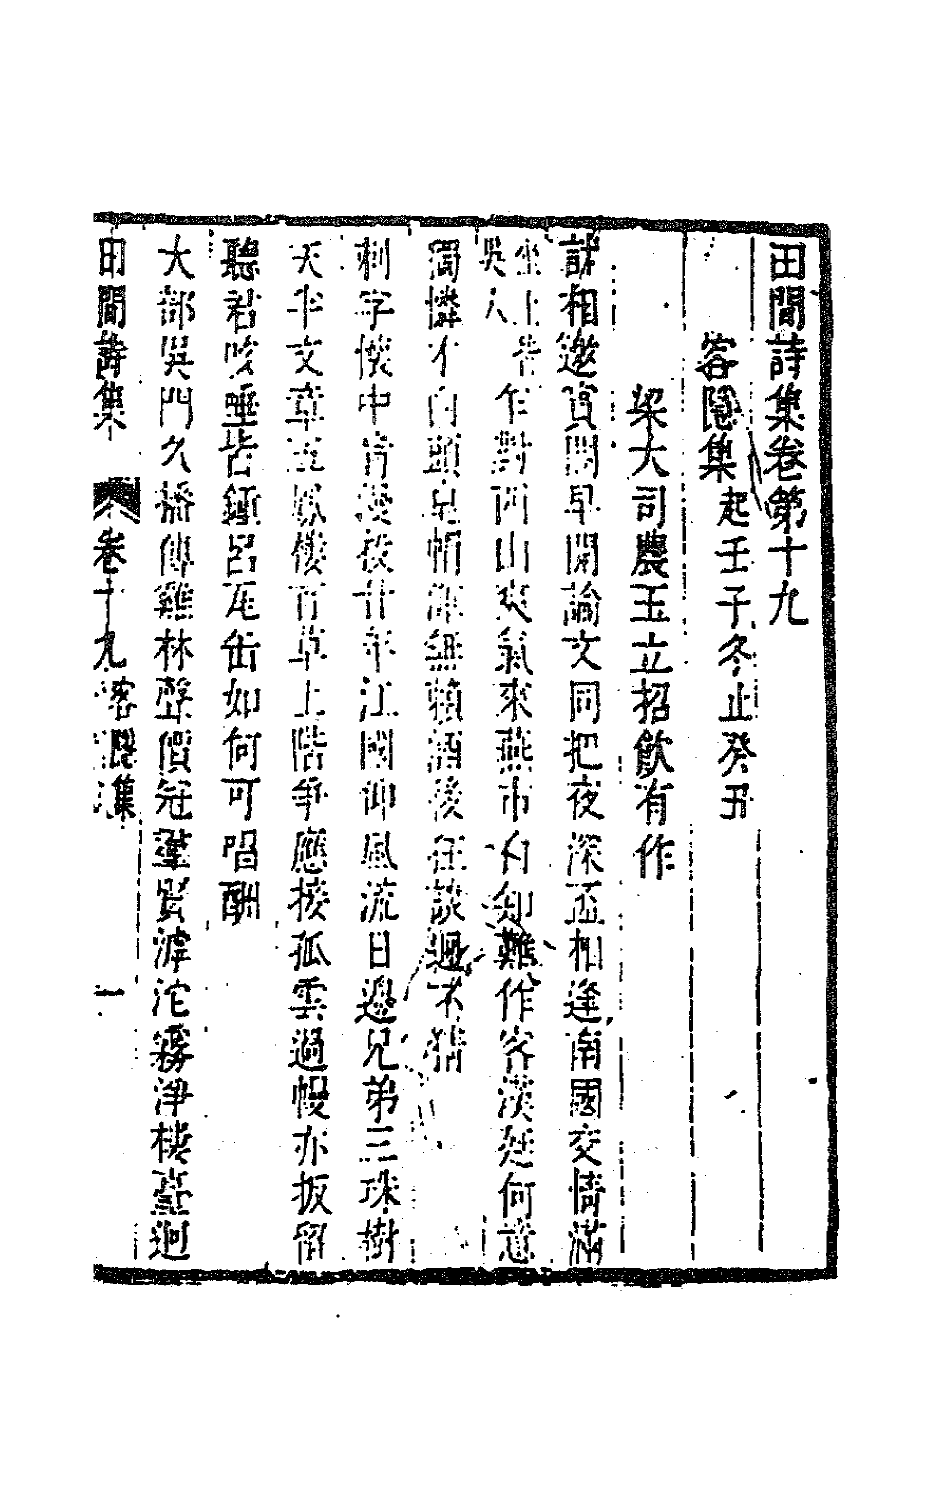 田間詩集卷第十九
客隱集起壬子冬止癸丑
梁大司農玉立招飲有作
詩相邀賓閣早開論文同把夜深盃相逢南國交情滿
坐上皆吳人乍對西山爽氣來燕市自知難作客漢廷何意
獨憐才白頭見帽渾無賴酒後狂談迥不猜
刺字懷中肯漫投廿年江國仰風流日邊兄弟三珠樹
天半文章五鳳樓百草上階爭應接孤雲過幔亦扳留
聽君咳唾皆鐘呂瓦缶如何可唱酬
大部吳門久播傳雞林聲價冠羣賢滹沱霧淨棲臺迥
田間詩集 卷十九 客隱集 一